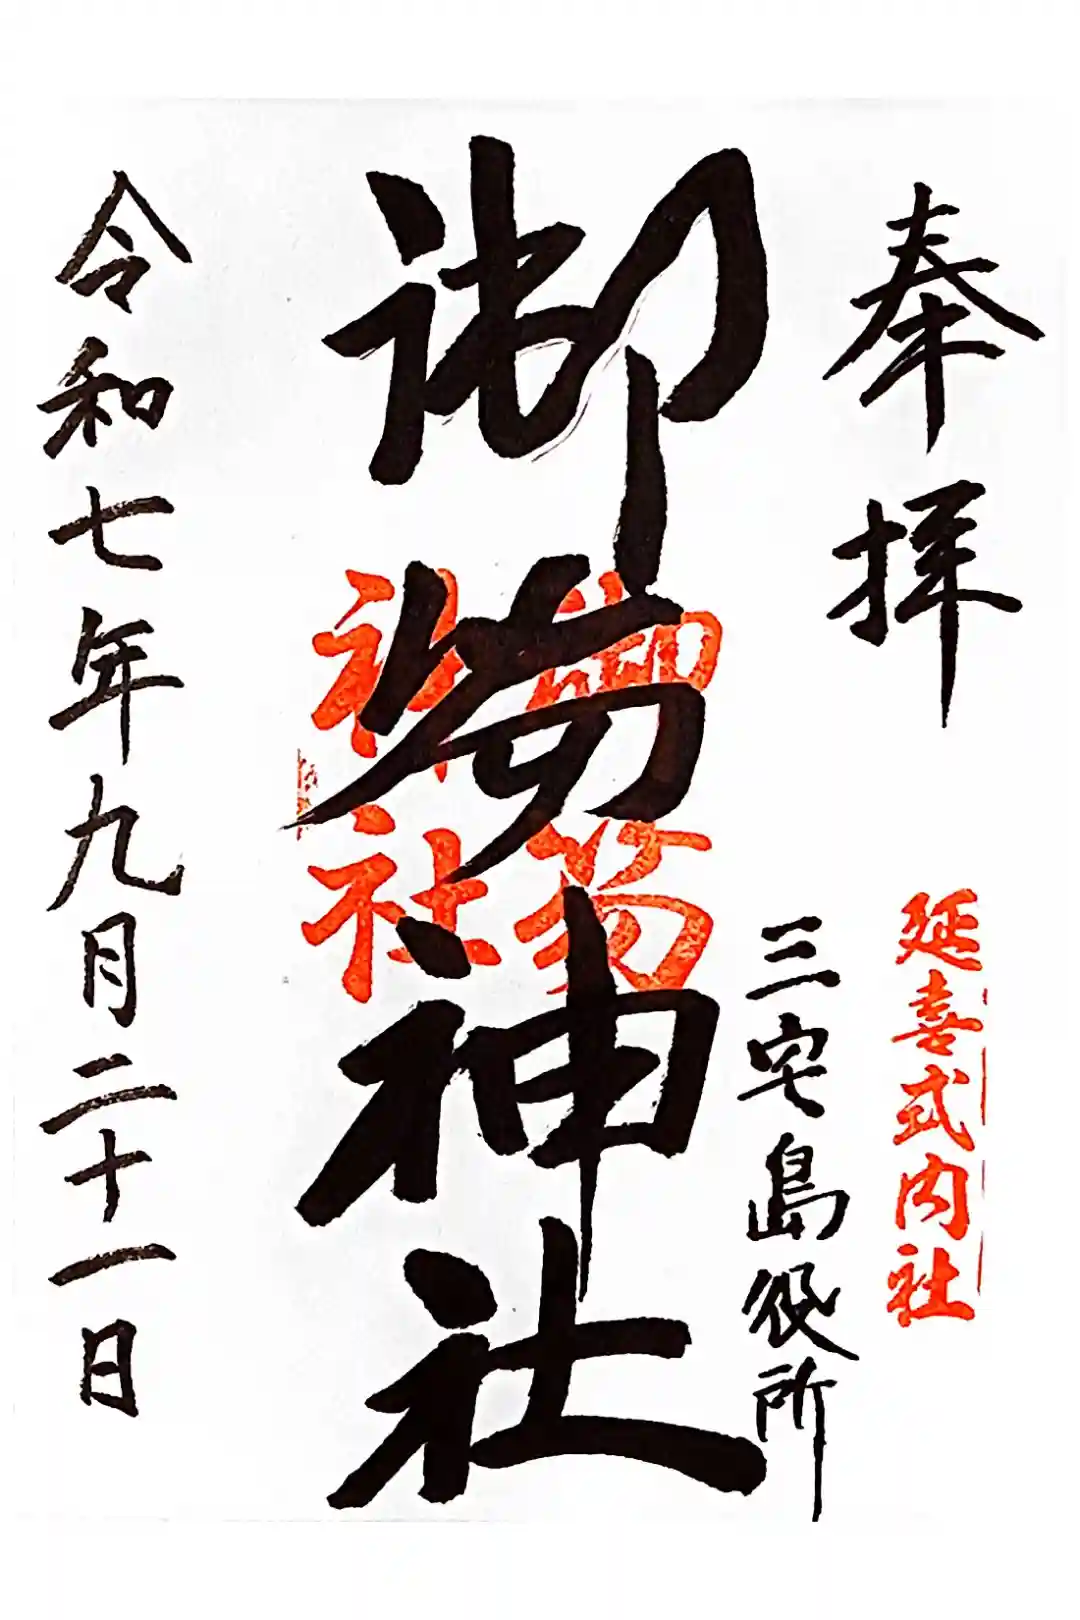 奉拝
延喜式内社
三宅島役所
御笏神社
御笏
神社
令和七年九月二十一日